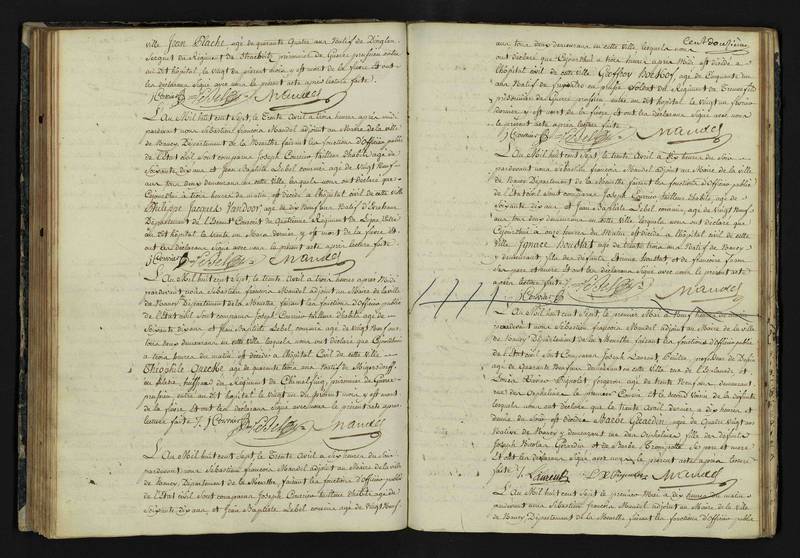 ville Jean Blache agé de quarante quatre ans Natif de
Sergent du Régiment de prisonnier de Guerre prussien entré
au dit hôpital, le vingt du présent mois y est mort de la fièvre et ont
les déclarans Signé avec nous le présent acte après lecture faite.
J Couvrier Lebel Mandel
L'An Mil huit cent Sept, le Trente Avril à trois heures après midi
pardevant nous Sébastien françois Mandel adjoint au Maire de la ville
de Nancy, Département de la Meurthe, faisant les fonctions d'Officier public
de l'Etat civil sont comparus Joseph Couvrier tailleur d'habits agé de
Soixante dix ans et Jean Baptiste Lebel commis agé de vingt Neuf
ans tous deux demeurans en cette ville lesquels nous ont déclaré que
Cejourdhui à trois heures du matin est décédé à l'hôpital civil de cette ville
Philippe Jacques agé de dix Neuf ans Natif d'
Département de l' Conscrit du Quatrième Régiment de Ligne entré
au dit hôpital le trente un Mars dernier, y est mort de la fièvre et
ont les déclarans Signé avec nous le présent acte après lecture faite
J Couvrier Lebel Mandel
L'An Mil huit cent Sept, le trente Avril à trois heures après Midi
pardevant nous Sébastien françois Mandel adjoint au Maire de la ville
de Nancy Département de la Meurthe, faisant les fonctions d'Officier public
de l'Etat civil sont comparus Joseph Couvrier tailleur d'habits agé de
Soixante dix ans et Jean Baptiste Lebel, commis agé de vingt Neuf ans,
tous deux demeurans en cette ville lesquels nous ont déclaré que Cejourdhui
à trois heures du matin est décédé à l'hôpital Civil de cette ville
Théophile agé de quarante trois ans Natif de
en du Régiment de prisonnier de Guerre
prussien, entré au dit hôpital le vingt un du présent mois, y est mort
de la fièvre, et ont les déclarans signé avec nous le présent acte après
lecture faite J. Couvrier
Lebel Mandel
L'An Mil huit cent Sept, le Trente Avril à Six heures du Soir
pardevant nous Sébastien françois Mandel adjoint au Maire de la ville
de Nancy, Département de la Meurthe, faisant les fonctions d'Officier public
de l'Etat civil sont comparus Joseph Couvrier tailleur d'habits agé de
Soixante dix ans, et Jean Baptiste Lebel commis agé de vingt Neuf
Cent douzième
ans tous deux demeurans en cette ville, lesquels nous
ont déclaré que Cejourdhui à trois heures après Midi est décédé à
l'hôpital civil de cette ville Geoffroy agé de Cinquante un
ans Natif de en prusse Soldat du Régiment de
prisonnier de Guerre prussien entré au dit hôpital le vingt un février
dernier y est mort de la fièvre, et ont les déclarans signé avec nous
le présent acte après lecture faite
J Couvrier Lebel Mandel
L'An Mil huit cent Sept, le trente Avril à Six heures du Soir
pardevant nous Sébastien françois Mandel Adjoint au Maire de la ville
de Nancy, Département de la Meurthe faisant les fonctions d'Officier public
de l'Etat civil sont comparus Joseph Couvrier tailleur d'habits, agé de
Soixante dix ans, et Jean Baptiste Lebel commis, agé de vingt Neuf
ans, tous deux demeurans en cette ville, lesquels nous ont déclaré que
Cejourdhui à onze heures du Matin est décédé à l'hôpital civil de cette
Ville Ignace agé de trente trois ans Natif de Nancy
y demeurant, fils des défunts Etienne et de françoise
Ses père et mère et ont les déclarans signé avec nous le présent acte
après lecture faite
J Couvrier Lebel Mandel
L'An Mil huit cent Sept, le premier Mai à Neuf heures du matin
pardevant nous Sébastien françois Mandel adjoint au Maire de la ville
de Nancy, Département de la Meurthe faisant les fonctions d'Officier public
de l'Etat civil sont Comparus Joseph Laurent professeur de Dessin
agé de quarante Neuf ans demeurant en cette ville rue de et
Louis forgeron agé de trente Neuf ans, demeurant
rue des Orphelines, le premier Cousin et le second Voisin de la défunte
lesquels nous ont déclaré que le trente Avril dernier à dix heures et
demie du soir est décédée Barbe Girardin agée de Quatre vingt ans
Native de Nancy y demeurant rue des Orphelines fille des défunts
Joseph Nicolas Girardin et de Barbe Ses père et mère
Et ont les déclarans signé avec nous le présent acte après lecture
faite J. Laurent Mandel
L'An Mil huit cent Sept le premier Mai à dix heures du matin
pardevant nous Sébastien françois Mandel adjoint au Maire de la ville
de Nancy, Département de la Meurthe, faisant les fonctions d'Officier public